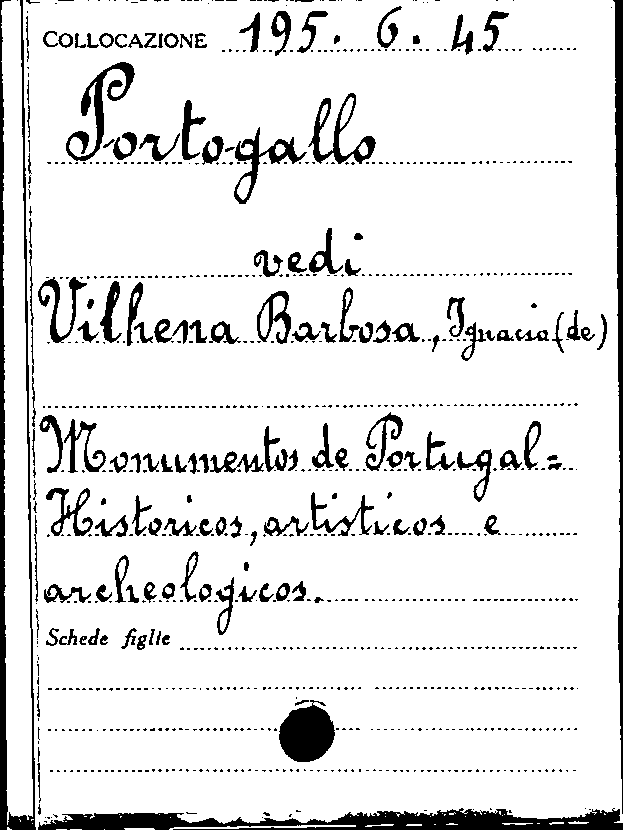 COLLOCAZIONE 195. 6. 45
Portogallo
vedi
Vilhena Barbosa, Ignacio (de)
Monumentos de Portugal=
Historicos, artisticos e
archeologicos.
Schede figlie